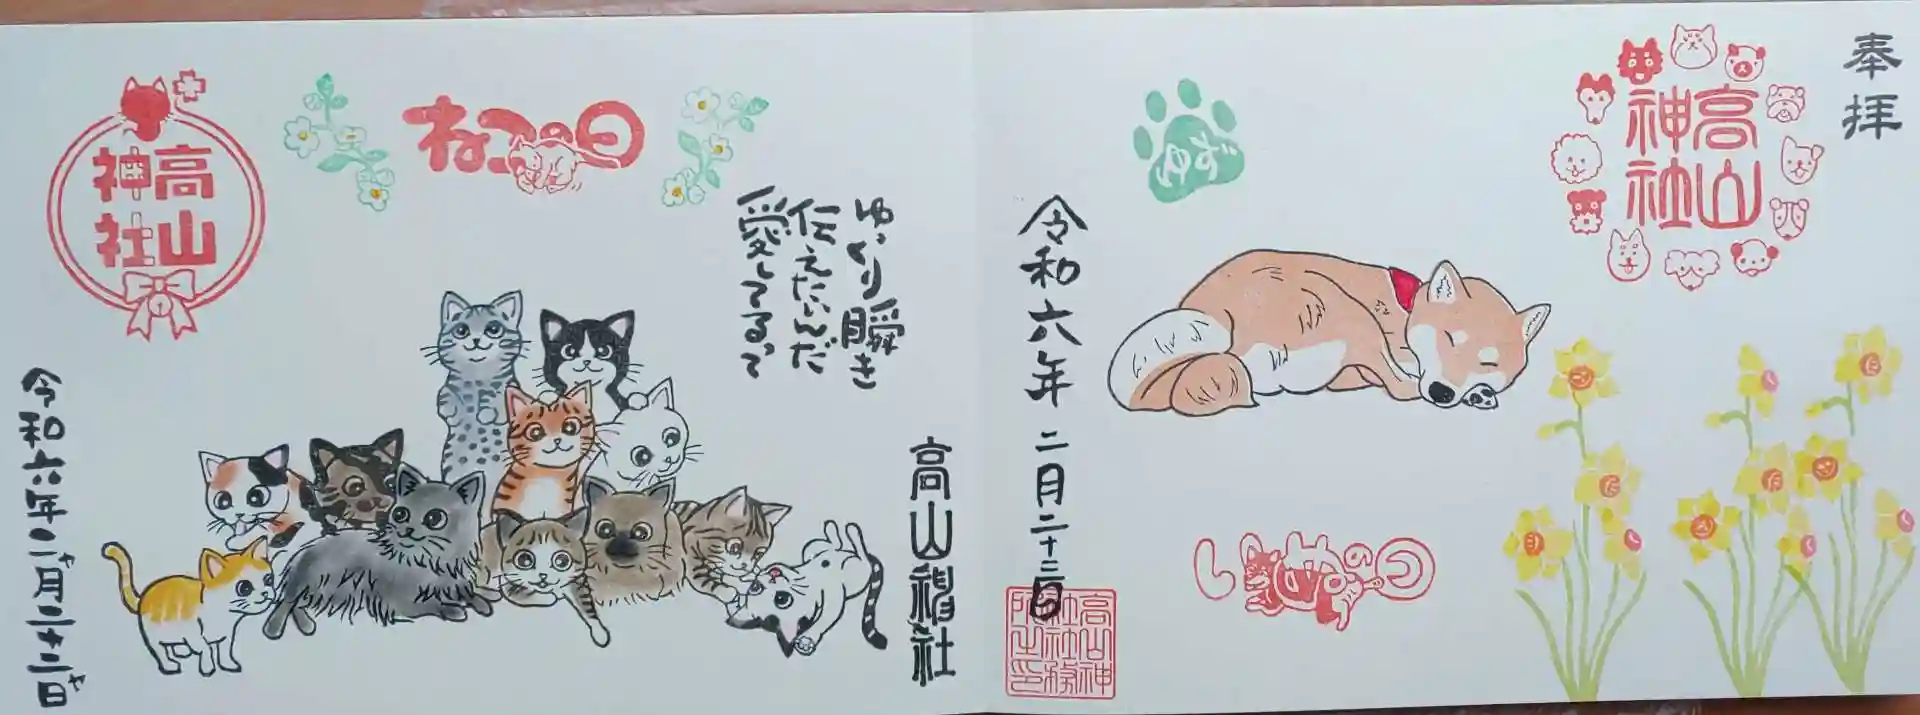 奉拝
高山
神社
令和六年 二月二十二日
高山神
社社務
所之印
ねこの日
高山
神社
ゆっくり瞬き
伝えたいんだ
愛してるって
高山神社
令和六年二ャ月二十二ャ日